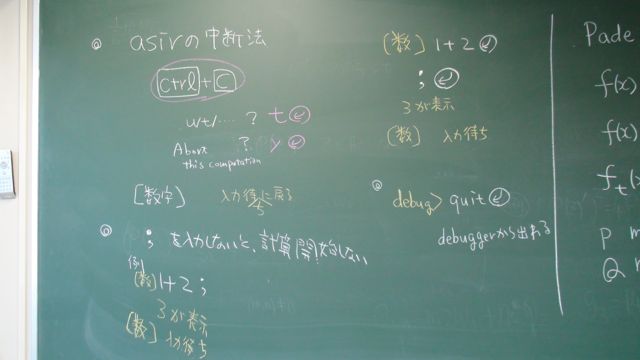 ◎ asirの中断法
ctrl + C
w/t/‥‥ ? t ↵
Abort ? y ↵
this computation
[数字] 入力待ちに戻る
◎ ; を入力しないと、計算開始しない
例)
[数] 1+2 ;
3が表示
[数] 入力待ち
[数] 1+2 ↵
; ↵
3が表示
[数] 入力待ち
◎ debug> quit ↵
debuggerから出れる
Pade
f(x)
f(x)
f_t(x
P m
Q